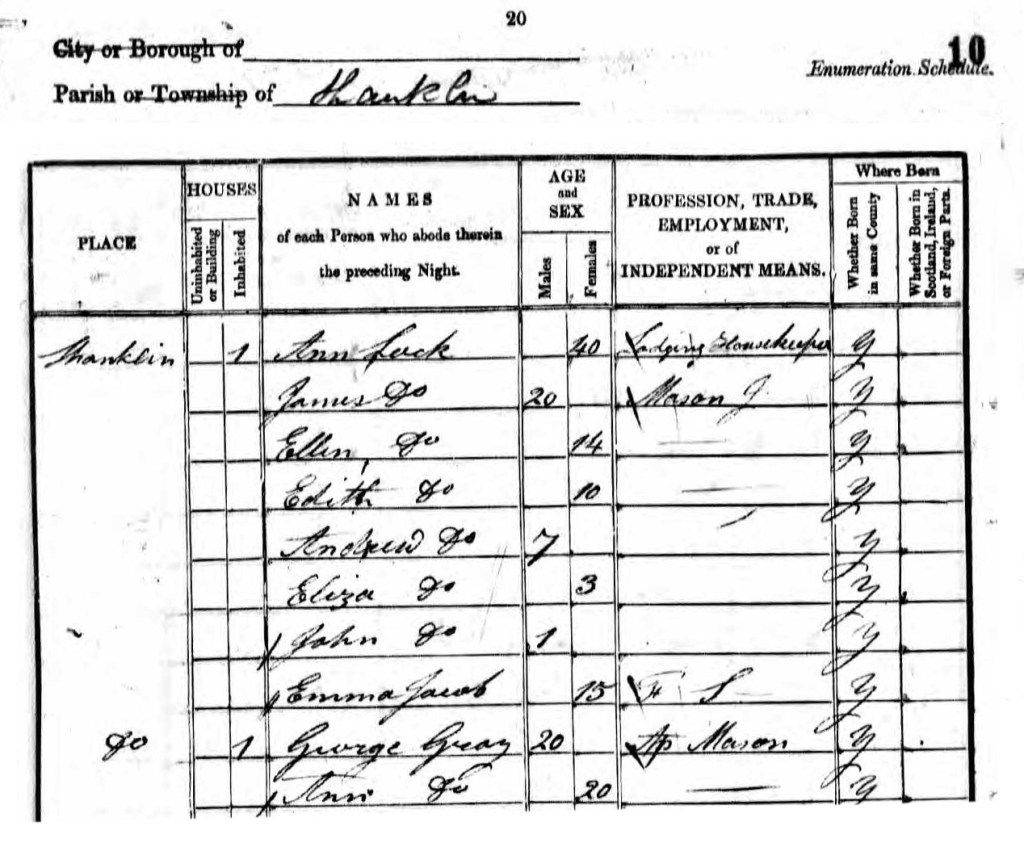 20
City or Borough of
10
Enumeration Schedule.
Parish or Township of Shanklin
PLACE
HOUSES
Uninhabited or Building
Inhabited
NAMES
of each Person who abode therein
the preceding Night.
AGE
and
SEX
Males
Females
PROFESSION, TRADE,
EMPLOYMENT,
or of
INDEPENDENT MEANS.
Where Born
Whether Born in same County
Whether Born in Scotland, Ireland, or Foreign Parts.
Shanklin 1 Ann Lock 40 Lodging Housekeeper Y
James Do 20 Mason J Y
Ellen Do 14 — Y
Edith Do 10 — Y
Andrew Do 7 Y
Eliza Do 3 Y
John Do 1 Y
Emma Jacob 15 F S Y
Do 1 George Gray 20 Ap Mason Y
Ann Do 20 — Y